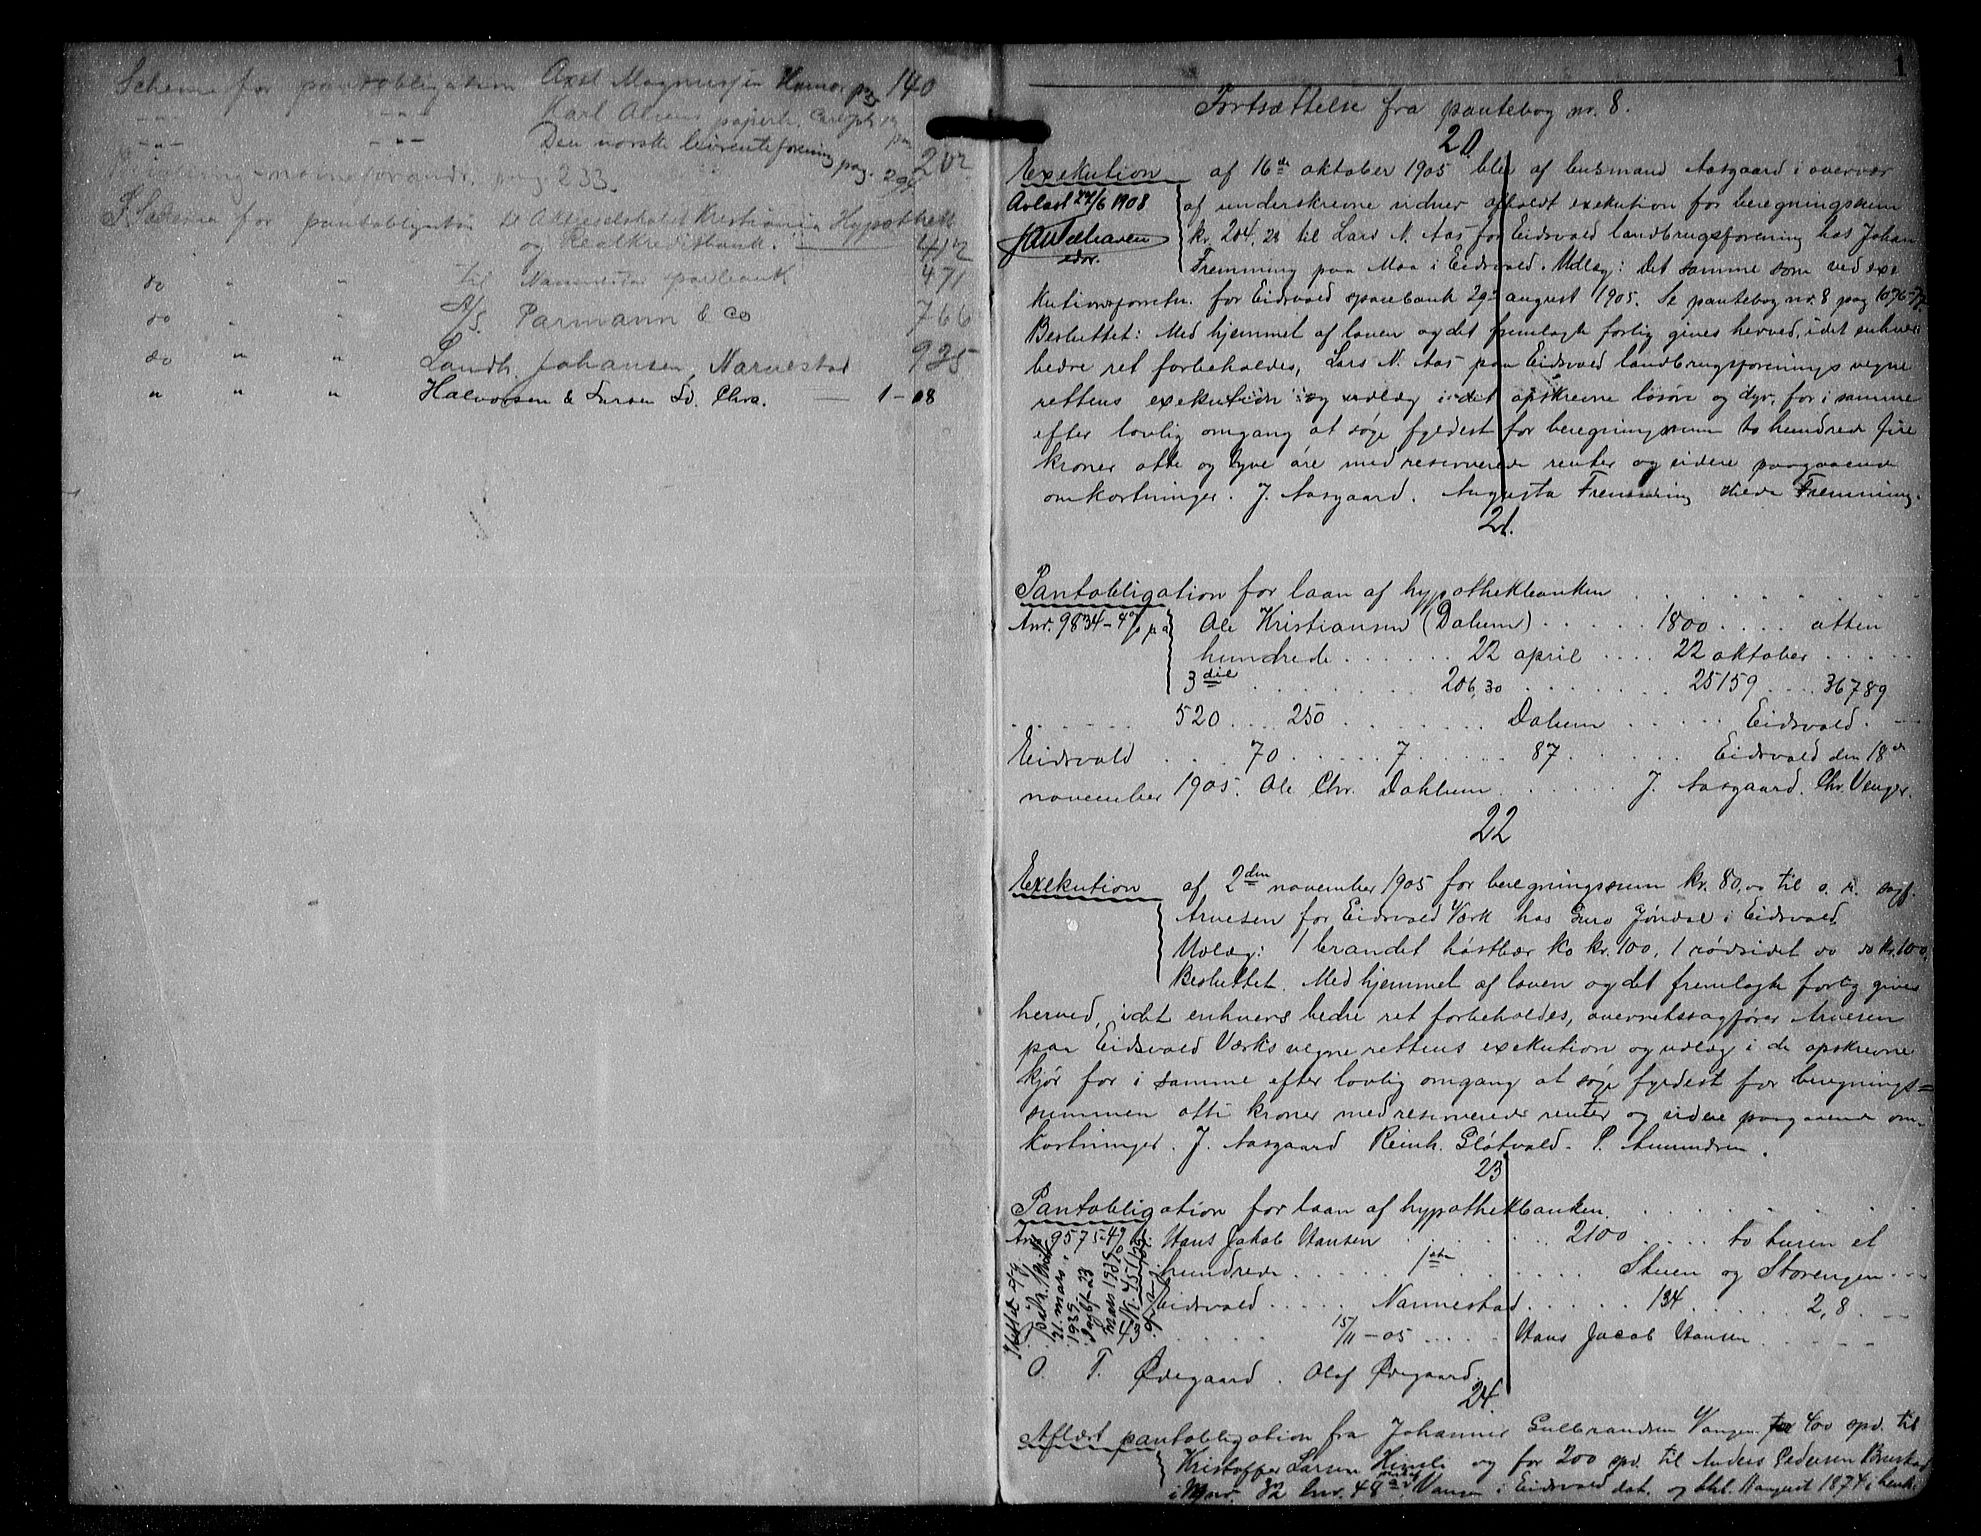 Schema for pantobligation Axel Magnussen pag 140
-"- -"- Karl Olsens papirh.
-"- -"- Den norske livrenteforening pag. 202
pag. 233. 294
Schema for pantobligation til Aktieselskabet Kristiania Hypothek
og Realkreditbank. 412
do " " til Nannestad sparebank 471
do " " A/S. Parmann & Co 766
do " " Landh. Johansen, Narvestad 925
" " " Halvorsen & Larsen Ld. Chra. — 1 - 08
1
Fortsættelse fra pantebog nr. 8.
20.
Exekution af 16de oktober 1905 blev af lensmand Aasgaard i overvær
Avlæst 27/6 1908 af underskrevne vidner afholdt exekution for beregningssum
kr. 204,28 til Lars N. Aas for Eidsvold landbrugsforening hos Johan
Fremming paa Moa i Eidsvold. Udlæg: Det samme som ved exe
kutionsforretn. for Eidsvold sparebank 29de august 1905. Se pantebog nr. 8 pag 1076-77.
Besluttet: Med hjemmel af loven og det fremlagte forlig gives herved, idet enhvers
bedre ret forbeholdes, Lars N. Aas paa Eidsvold landbrugsforenings vegne
rettens exekution og udlæg i det opskrevne løsøre og dyr, for i samme
efter lovlig omgang at søge fyldest for beregningssum to hundrede fire
kroner otte og tyve øre med reserverede renter og videre paagaaende
omkostninger. J. Aasgaard. Augusta Fremming Fremming.
21.
Pantobligation for laan af hypothekbanken . . . . . .
Anr. 9834 - 4% p a Ole Kristiansen (Dahlum) . . . . . 1800 . . . . atten
hundrede . . . . . . 22 april . . . . 22 oktober . . . . .
3die . . . . . . . . 206,30 . . . . . . . . 25159 . . . . 36789
. . . . . . 520 . . . . 250 . . . . . . . . Dahlum . . . . . Eidsvold. -
Eidsvold . . . . 70 . . . . . . 7 . . . . . . 87 . . . . . . Eidsvold den 18de
november 1905. Ole Chr. Dahlum . . . . . . J. Aasgaard. Chr. Venger.
22
Exekution af 2den november 1905 for beregningssum kr. 80,00 til o. r. sagf.
Arnesen for Eidsvold Værk hos Guro Jøndal i Eidsvold.
Udlæg: 1 brandet høstbær ko kr. 100, 1 rødsidet do do kr. 100.
Besluttet. Med hjemmel af loven og det fremlagte forlig gives
herved, idet enhvers bedre ret forbeholdes, overretssagfører Arnesen
paa Eidsvold Værks vegne rettens exekution og udlæg i de opskrevne
kjør for i samme efter lovlig omgang at søge fyldest for beregnings=
summen otti kroner med reserverede renter og videre paagaaende om-
kostninger. J. Aasgaard Reinh. Gløtvold. P. Amundsen.
23
Pantobligation for laan af hypothekbanken. . . . . . .
Anr. 9575 - 4% Hans Jakob Hansen . . . . . . 2100 . . . . to tusen et
hundrede . . . . . . 1ste . . . . . . Stuen og Storengen . . .
Eidsvold . . . . . Nannestad . . . . . 134 . . . . . 2,8. -
. . . . . 15/11 - 05 . . . . . Hans Jacob Hansen . . . . .
21. mars 1939. dagbf. 23 mars 1939
O. T. Ødegaard. Olaf Ødegaard.
24.
Aflæst pantobligation fra Johannes Gulbrandsen Vangen for 400 spd. til
Kristoffer Larsen Himle og for 200 spd. til Anders Pedersen
i Mnr. 82 lnr. 48a Vangen i Eidsvold dat. og thl. 11 august 1874